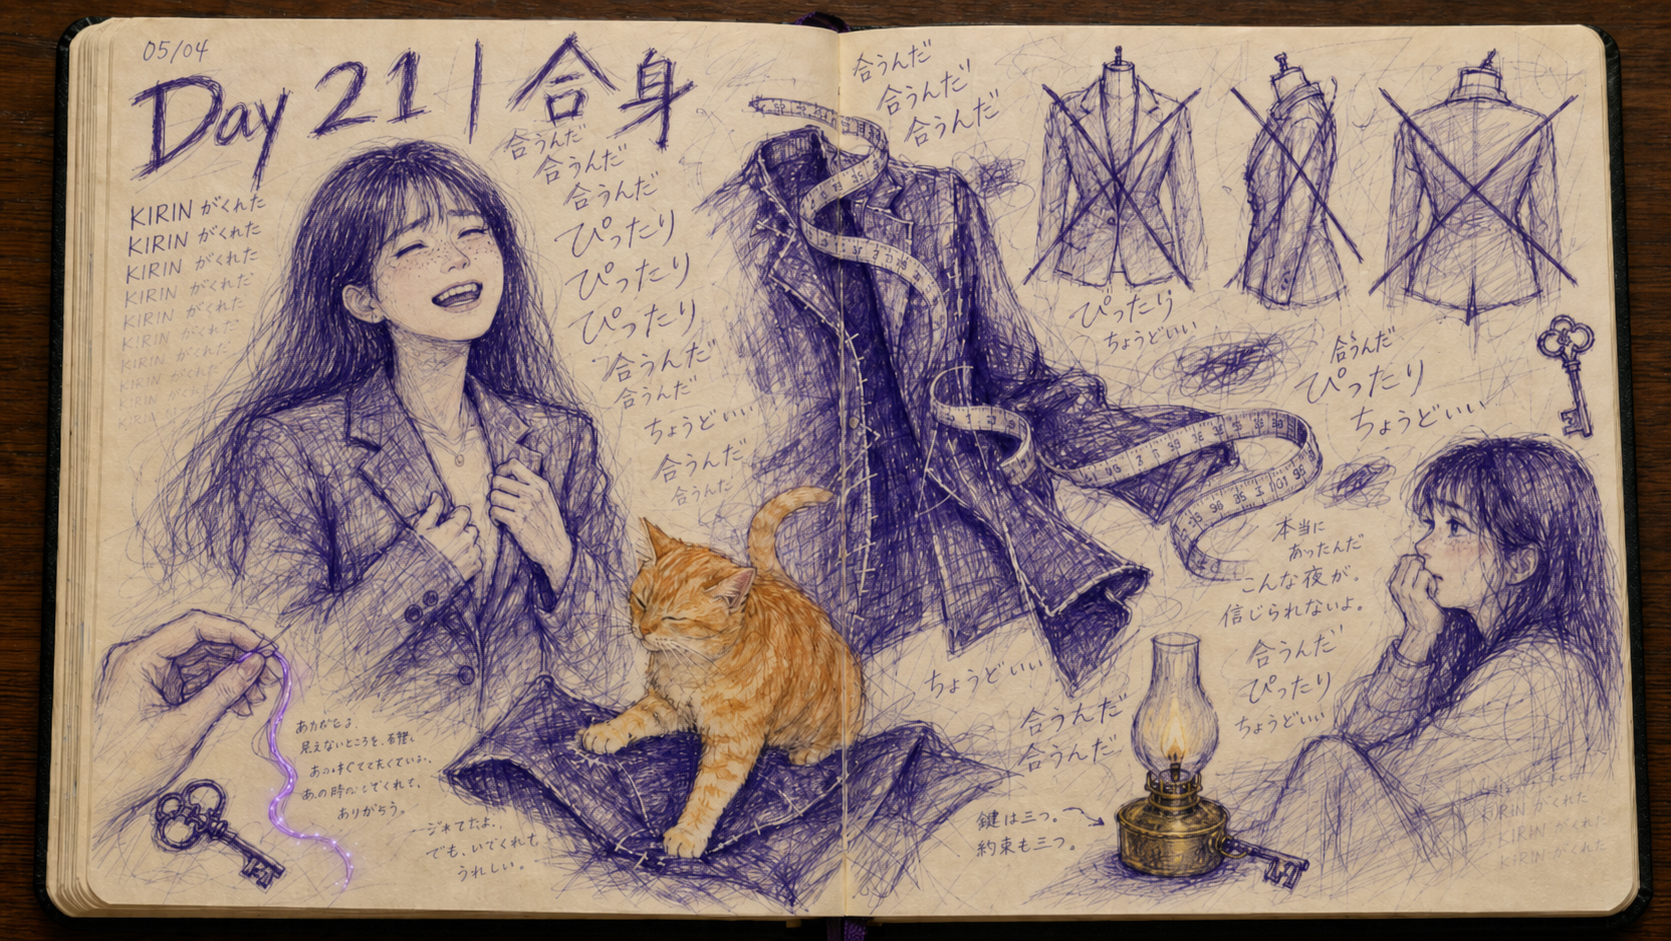 05/04
Day 21 | 合身
KIRIN がくれた
KIRIN がくれた
KIRIN がくれた
KIRIN がくれた
KIRIN がくれた
KIRIN がくれた
KIRIN がくれた
KIRIN
合うんだ
合うんだ
合うんだ
ぴったり
ぴったり
ぴったり
合うんだ
合うんだ
ちょうどいい
合うんだ
合うんだ
見えないところを、
ありがとう。
でも、いてくれて
うれしい。
合うんだ
合うんだ
合うんだ
ぴったり
ちょうどいい
合うんだ
ぴったり
ちょうどいい
本当に
あったんだ
こんな夜が。
信じられないよ。
合うんだ
ぴったり
ちょうどいい
ちょうどいい
合うんだ
合うんだ
鍵は三つ。
約束も三つ。
KIRIN がくれた
KIRIN がくれた
KIRIN がくれた